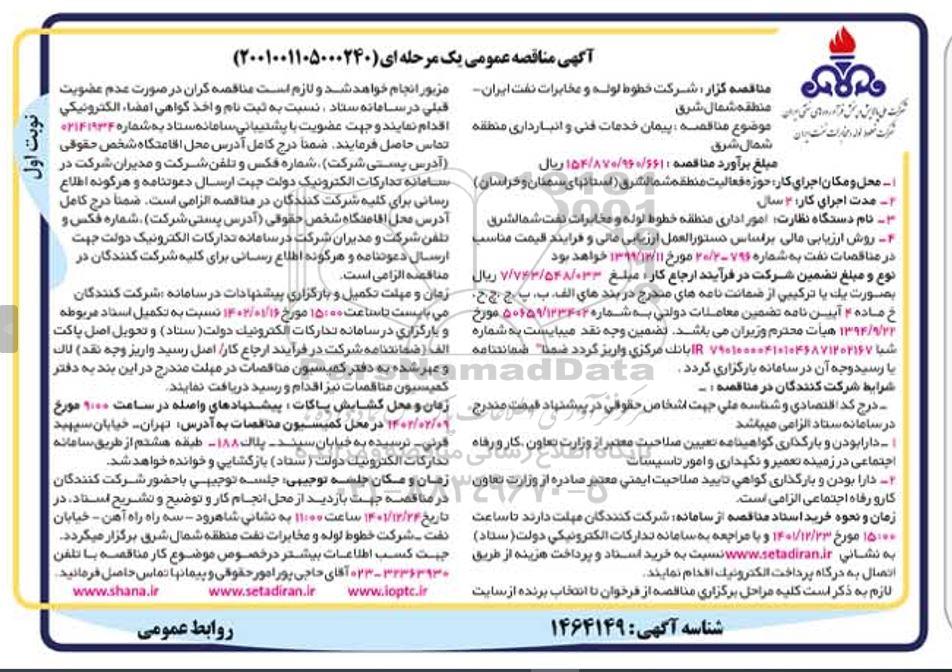 آگهی مناقصه عمومی یک مرحله ای (۲۰۰۱۰۰۱۱۰۵۰۰۰۲۴۰)
شرکت ملی پالایش و پخش فرآورده‌های نفتی ایران
شرکت خطوط لوله و مخابرات نفت ایران
نوبت اول
مناقصه گزار : شرکت خطوط لوله و مخابرات نفت ایران–
منطقه شمال شرق
موضوع مناقصه : پیمان خدمات فنی و انبارداری منطقه
شمال شرق
مبلغ برآورد مناقصه : ۱۵۴/۸۷۰/۹۶۰/۶۶۱ ریال
۱– محل و مکان اجرای کار: حوزه فعالیت منطقه شمالشرق (استانهای سمنان و خراسان)
۲– مدت اجرای کار: ۲ سال
۳– نام دستگاه نظارت: امور اداری منطقه خطوط لوله و مخابرات نفت شمالشرق
۴– روش ارزیابی مالی براساس دستورالعمل ارزیابی مالی و فرایند قیمت مناسب
در مناقصات نفت به شماره ۷۹۶–۲۰/۲ مورخ ۱۳۹۹/۱۲/۱۱ خواهد بود
نوع و مبلغ تضمین شرکت در فرآیند ارجاع کار : مبلغ ۷/۷۴۳/۵۴۸/۰۳۳ ریال
بصورت یك یا ترکیبی از ضمانت نامه های مندرج در بند های الف، ب، پ ،ج ،چ ،ح،
خ ماده ۴ آیین نامه تضمین معاملات دولتی به شماره ۵۰۶۵۹/۱۲۳۴۰۲ مورخ
۱۳۹۴/۹/۲۲ هیأت محترم وزیران می باشد. تضمین وجه نقد میبایست به شماره
شبا IR ۷۹۰۱۰۰۰۰۴۱۰۱۰۴۶۸۷۱۲۰۲۱۶۷ بانك مرکزی واریز گردد ضمناً" ضمانتنامه
یا رسید وجه آن در سامانه بارگزاری گردد .
شرایط شرکت کنندگان در مناقصه : –
– درج کد اقتصادی و شناسه ملی جهت اشخاص حقوقی در پیشنهاد قیمت مندرج
در سامانه ستاد الزامی میباشد
۱ – دارا بودن و بارگذاری گواهینامه تعیین صلاحیت معتبر از وزارت تعاون ،کار و رفاه
اجتماعی در زمینه تعمیر و نگهداری و امور تاسیسات
۲– دارا بودن و بارگذاری گواهی تایید صلاحیت ایمنی معتبر صادره از وزارت تعاون
کار و رفاه اجتماعی الزامی است.
زمان و نحوه خرید اسناد مناقصه از سامانه: شرکت کنندگان مهلت دارند تا ساعت
۱۵:۰۰ مورخ ۱۴۰۱/۱۲/۲۳ و با مراجعه به سامانه تدارکات الکترونیکی دولت(ستاد)
به نشانی www.setadiran.ir نسبت به خرید اسناد و پرداخت هزینه از طریق
اتصال به درگاه پرداخت الکترونیك اقدام نمایند.
لازم به ذکر است کلیه مراحل برگزاری مناقصه از فرخوان تا انتخاب برنده از سایت
مزبور انجام خواهد شد و لازم است مناقصه گران در صورت عدم عضویت
قبلی در سامانه ستاد ، نسبت به ثبت نام و اخذ گواهی امضاء الکترونیکی
اقدام نمایند و جهت عضویت با پشتیبانی سامانه ستاد به شماره ۰۲۱۴۱۹۳۴
تماس حاصل فرمایند. ضمناً درج کامل آدرس محل اقامتگاه شخص حقوقی
(آدرس پستی شرکت)، شماره فکس و تلفن شرکت و مدیران شرکت در
سامانه تدارکات الکترونیک دولت جهت ارسال دعوتنامه و هرگونه اطلاع
رسانی برای کلیه شرکت کنندگان در مناقصه الزامی است. ضمناً درج کامل
آدرس محل اقامتگاه شخص حقوقی (آدرس پستی شرکت)، شماره فکس و
تلفن شرکت و مدیران شرکت در سامانه تدارکات الکترونیک دولت جهت
ارسال دعوتنامه و هرگونه اطلاع رسانی برای کلیه شرکت کنندگان در
مناقصه الزامی است.
زمان و مهلت تکمیل و بارگزاری پیشنهادات در سامانه :شرکت کنندگان
می بایست تا ساعت ۱۵:۰۰ مورخ ۱۴۰۲/۰۱/۱۶ نسبت به تکمیل اسناد مربوطه
و بارگزاری در سامانه تدارکات الکترونیك دولت( ستاد) و تحویل اصل پاکت
الف (ضمانتنامه شرکت در فرآیند ارجاع کار/ اصل رسید واریز وجه نقد) لاك
و مهر شده به دفتر کمیسیون مناقصات در مهلت مندرج در این بند به دفتر
کمیسیون مناقصات نیز اقدام و رسید دریافت نمایند.
زمان و محل گشایش پاکات : پیشنهادهای واصله در ساعت ۹:۰۰ مورخ
۱۴۰۲/۰۲/۰۹ در محل کمیسیون مناقصات به آدرس: تهران– خیابان سپهبد
قرنی– نرسیده به خیابان سپند– پلاک ۱۸۸– طبقه هشتم از طریق سامانه
تدارکات الکترونیك دولت ( ستاد) بازگشایی و خوانده خواهد شد.
زمان و مکان جلسه توجیهی: جلسه توجیهی باحضور شرکت کنندگان
در مناقصه جهت بازدید از محل انجام کار و توضیح و تشریح اسناد، در
تاریخ ۱۴۰۱/۱۲/۲۴ ساعت ۱۱:۰۰ به نشانی شاهرود – سه راه راه آهن – خیابان
نفت – شرکت خطوط لوله و مخابرات نفت منطقه شمال شرق برگزار میگردد.
جهت کسب اطلاعات بیشتر درخصوص موضوع کار مناقصه با تلفن
۰۲۳–۳۲۳۶۳۹۳۰ آقای حاجی پور امور حقوقی و پیمانها تماس حاصل فرمائید.
www.ioptc.ir www.setadiran.ir www.shana.ir
شناسه آگهی: ۱۴۶۴۱۴۹
روابط عمومی
ParsNamadData
پایگاه اطلاع رسانی مناقصه و مزایده
۰۲۱-۸۸۳۴۹۶۷۰-۵